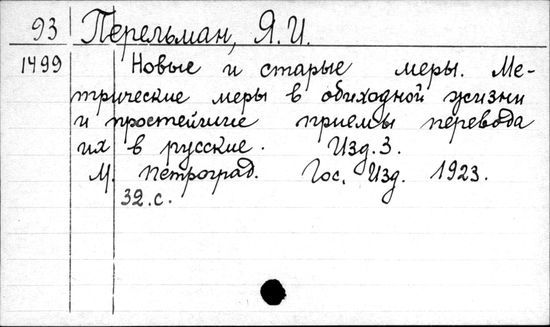 93 Перельман, Я.И.
1499 Новые и старые меры. Ме-
трические меры в обиходной жизни
и простейшие приемы перевода
их в русские. Изд. 3.
М. Петроград. Гос. Изд. 1923.
32.с.